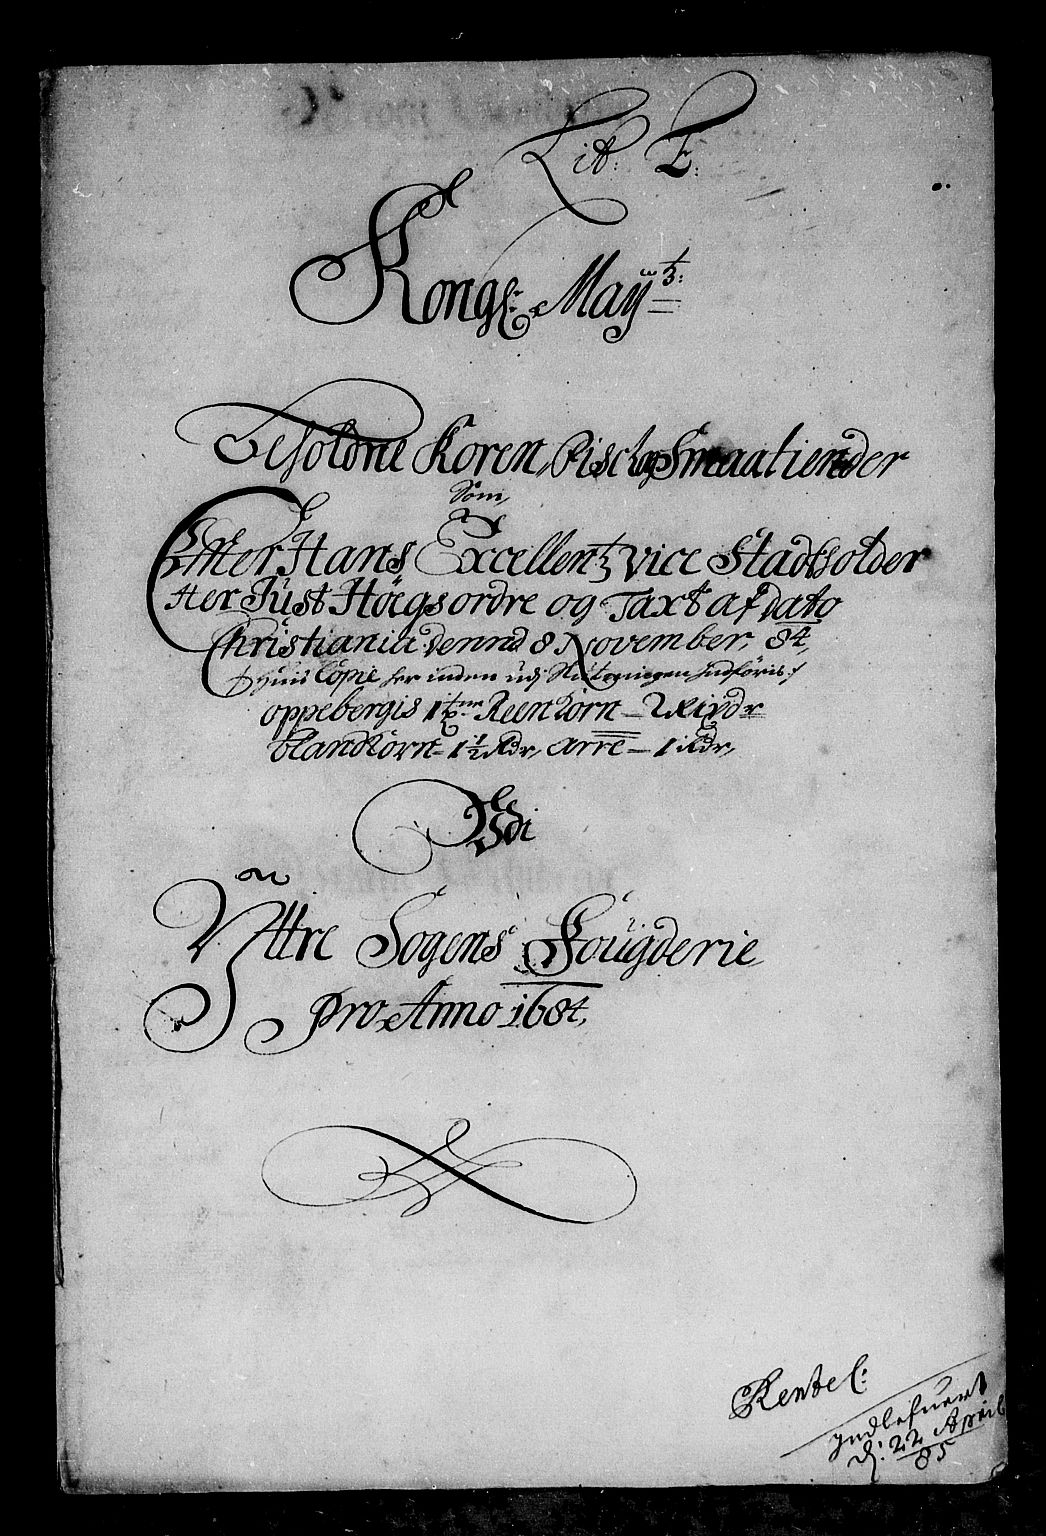 Lit: E:
Kongl: Mayttz:
Besoldne Koren, Fisch og Smaatiender
Som,
Efter Hans Excellentz Vice Stadtholder
Her Just Höegs ordre og Taxt af dato
Christiania dennd 8 November, 84,
huis Copie her inden udj Ruteningen indføris:/
oppebergis 1 tne Reenkorn – 2 Rixdr
blandkorn – 1½ Rdr, arre – 1 Rdr,
Udi
Yttre Sogens Fougderie
pro Anno 1684,
Rentel:
indlefuert
dj: 22 April
85